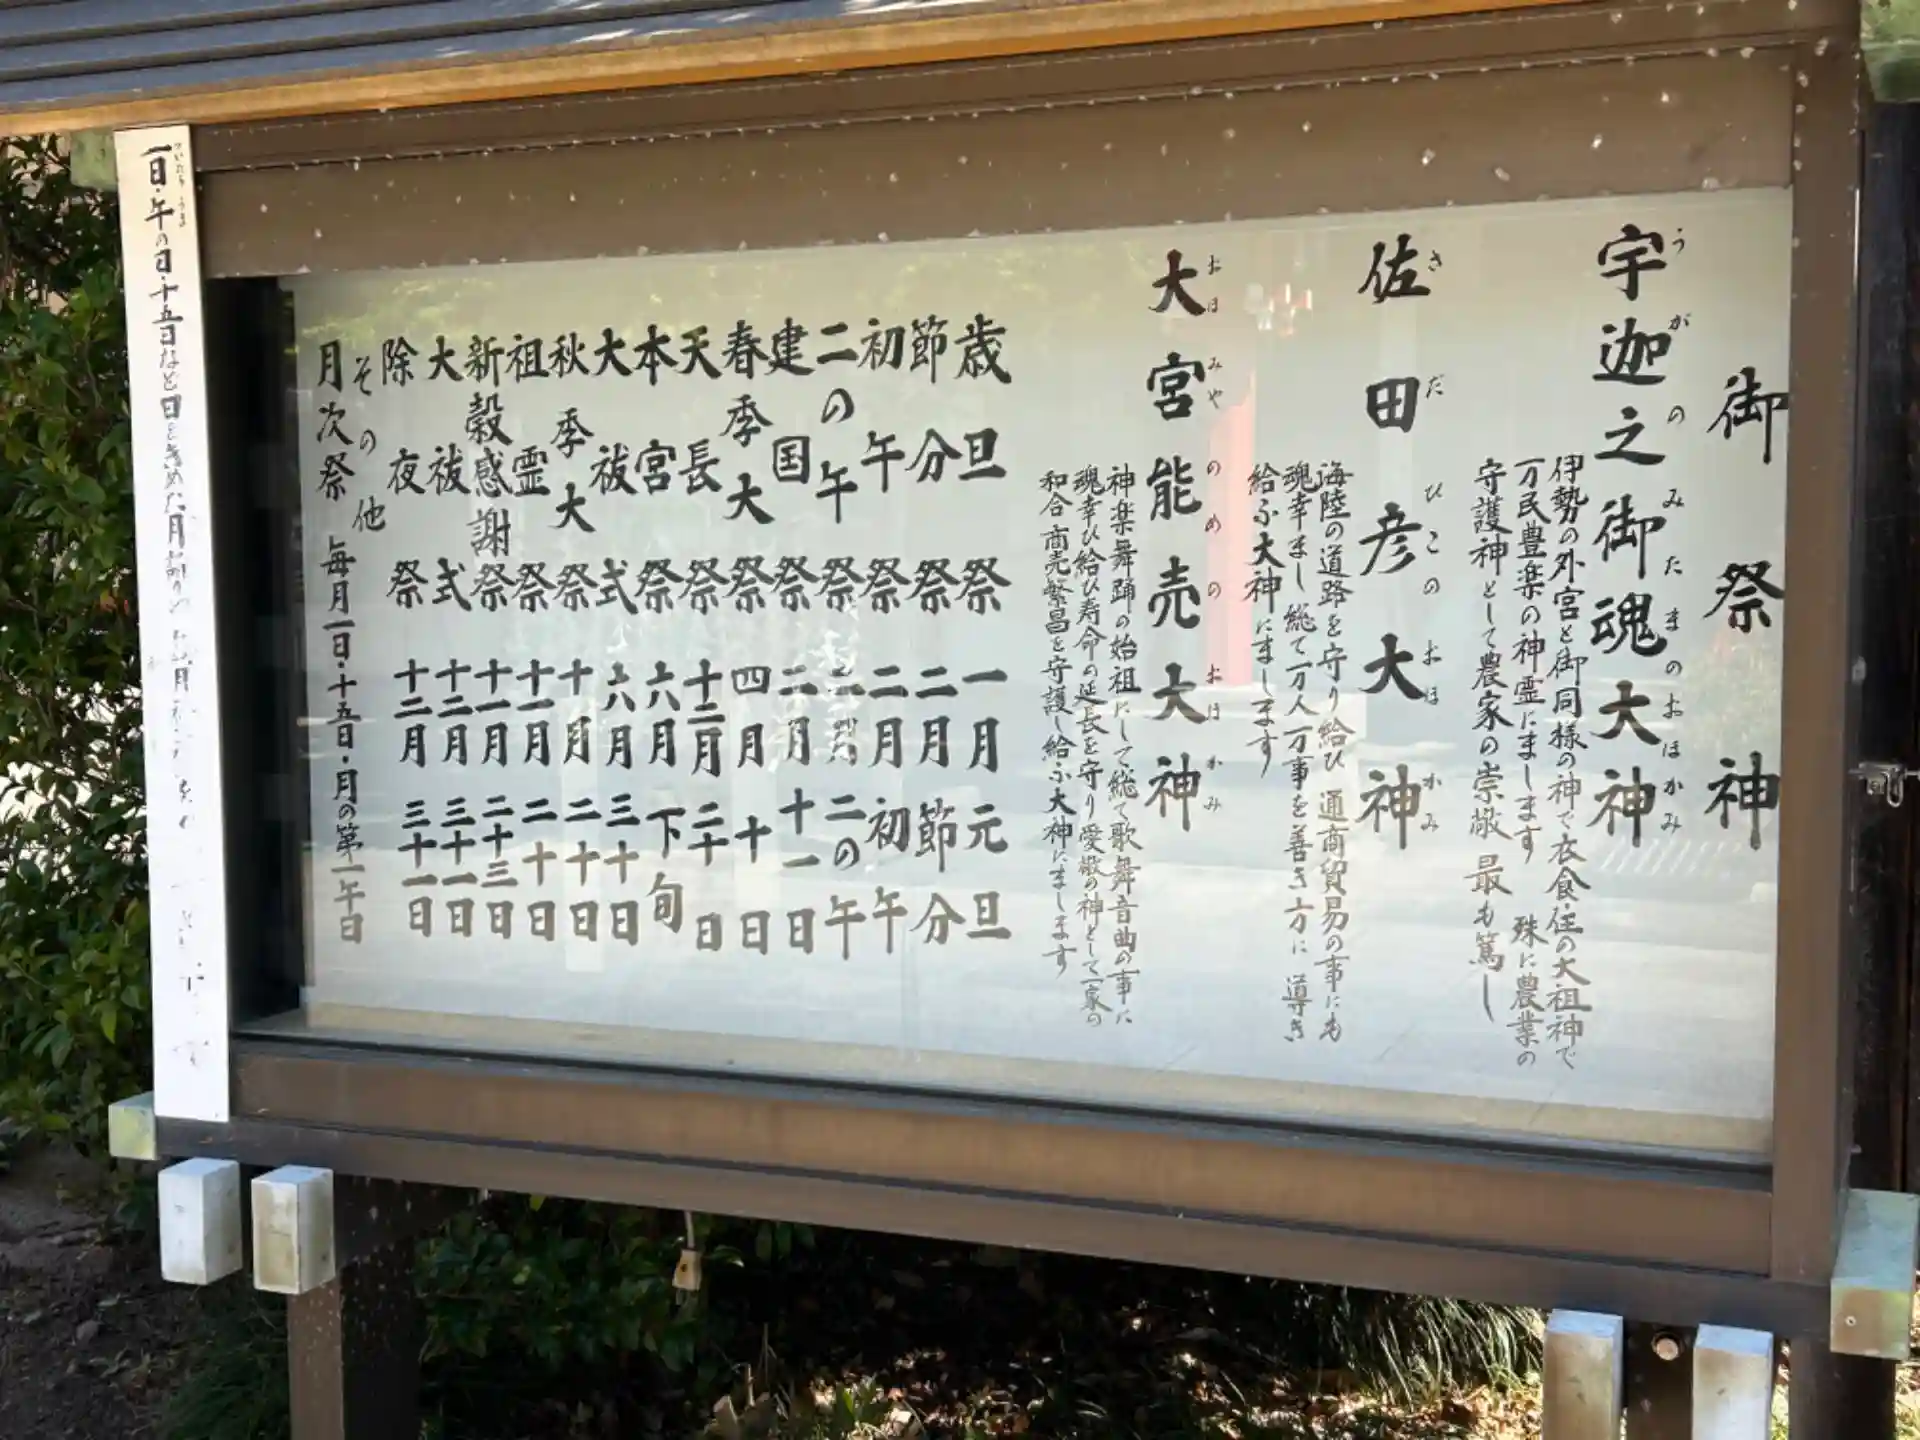 御祭神
宇迦之御魂大神
うがのみたまのおほかみ
伊勢の外宮と御同様の神で衣食住の大祖神で
万民豊楽の神霊にまします 殊に農業の
守護神として農家の崇敬最も篤し
佐田彦大神
さだひこのおほかみ
海陸の道路を守り給ひ 通商貿易の事にも
魂幸まし総て万人万事を善き方に導き
給ふ大神にまします
大宮能売大神
おほみやのめのおほかみ
神楽舞踊の始祖にして総て歌舞音曲の事に
魂幸ひ給ひ寿命の延長を守り愛敬の神として一家の
和合商売繁昌を守護し給ふ大神にまします
歳旦祭 一月元旦
節分祭 二月節分
初午祭 二月初午
二の午祭 二の午
建国祭 二月十一日
春季大祭 四月十日
天長祭 十二月二十日
本宮祭 六月下旬
大祓式 六月三十日
秋季大祭 十月二十日
祖霊祭 十一月二十日
新穀感謝祭 十一月二十三日
大祓式 十二月三十一日
除夜祭 十二月三十一日
その他
月次祭 毎月一日・十五日・月の第一午日
ついたち うま
一日・午の日・十五日など日をきめた月詣り